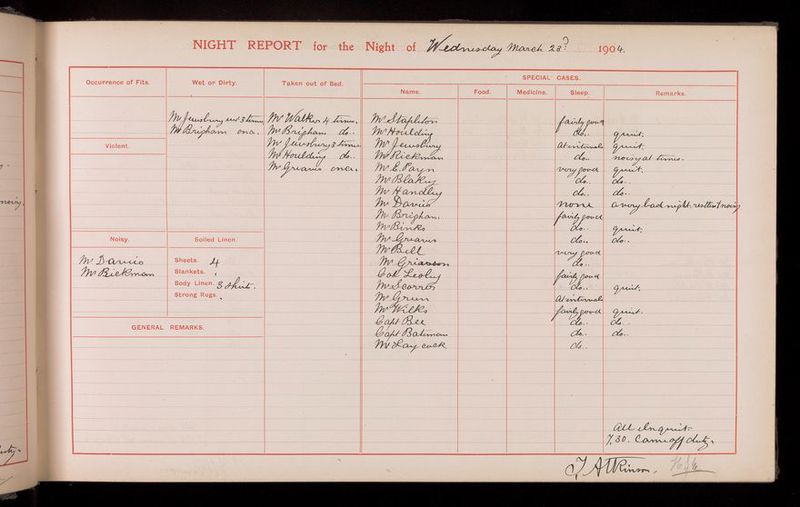 NIGHT REPORT for the Night of Wednesday March 23d 1904.
Occurrence of Fits.
Wet or Dirty.
Taken out of Bed.
SPECIAL CASES.
Name.
Food.
Medicine.
Sleep.
Remarks.
Mr Jewsbury wet 3 times
Mr Brigham once.
Mr Walker 4 times.
Mr Brigham do..
Mr Jewsbury 3 times
Mr Houlding do..
Mr Greaves once.
Violent.
Noisy.
Mr Davies
Mr Rickman
Soiled Linen.
Sheets. 4
Blankets.
Body Linen. 3 Shirts.
Strong Rugs.
GENERAL REMARKS.
Mr Stapleton fairly good
Mr Houlding do.. quiet.
Mr Jewsbury At intervals quiet.
Mr Rickman do.. noisy at times.
Mr E. Payn very good quiet.
Mr Blakey do.. do..
Mr Handley do.. do..
Mr Davies none a very bad night. restless & noisy
Mr Brigham. fairly good
Mr Binks do.. quiet.
Mr Greaves do.. do..
Mr Bell very good
Mr Grierson do..
Col Lesley fairly good
Mr Scorrer do.. quiet.
Mr Green At intervals
Mr Wilks fairly good quiet.
Capt Bee do.. do..
Capt Bateman do.. do..
Mr Laycock do..
All else quiet
7.30. Came off duty.
J Atkinson.